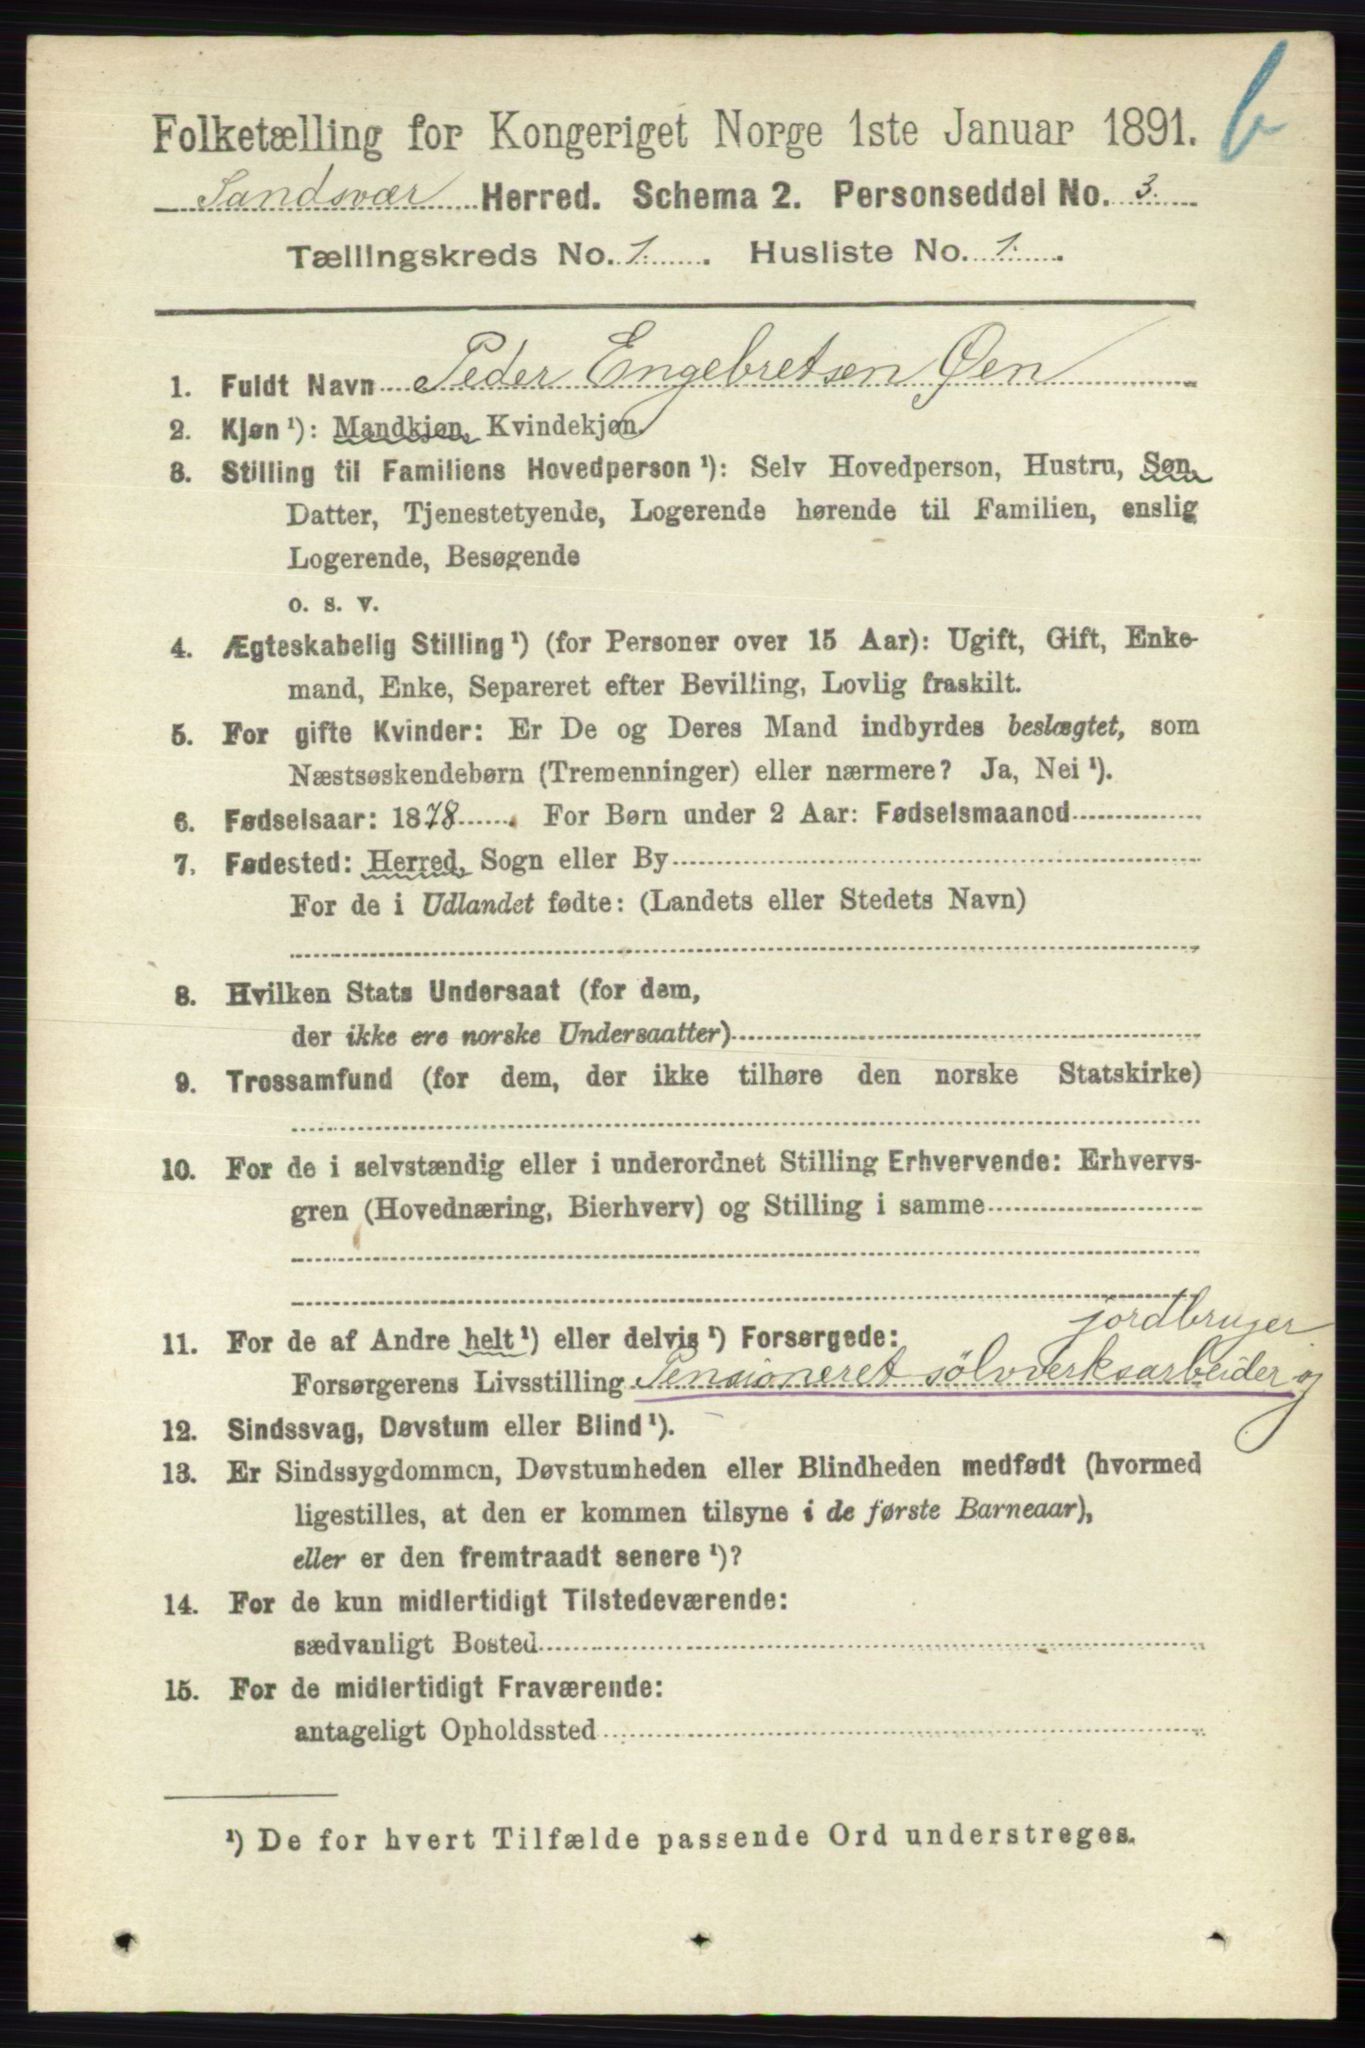 b
Folketælling for Kongeriget Norge 1ste Januar 1891.
Sandsvær Herred. Schema 2. Personseddel No. 3.
Tællingskreds No. 1. Husliste No. 1.
1. Fuldt Navn Peder Engebretsen Øen
2. Kjøn ¹): Mandkjøn, Kvindekjøn.
3. Stilling til Familiens Hovedperson ¹): Selv Hovedperson, Hustru, Søn,
Datter, Tjenestetyende, Logerende hørende til Familien, enslig
Logerende, Besøgende
o. s. v.
4. Ægteskabelig Stilling ¹) (for Personer over 15 Aar): Ugift, Gift, Enke-
mand, Enke, Separeret efter Bevilling, Lovlig fraskilt.
5. For gifte Kvinder: Er De og Deres Mand indbyrdes beslægtet, som
Næstsøskendebørn (Tremenninger) eller nærmere? Ja, Nei ¹).
6. Fødselsaar: 1878. For Børn under 2 Aar: Fødselsmaaned
7. Fødested: Herred, Sogn eller By
For de i Udlandet fødte: (Landets eller Stedets Navn)
8. Hvilken Stats Undersaat (for dem,
der ikke ere norske Undersaatter)
9. Trossamfund (for dem, der ikke tilhøre den norske Statskirke)
10. For de i selvstændig eller i underordnet Stilling Erhvervende: Erhvervs-
gren (Hovednæring, Bierhverv) og Stilling i samme
jordbruger
11. For de af Andre helt ¹) eller delvis ¹) Forsørgede:
Forsørgerens Livsstilling Pensioneret sölvverksarbeider og
12. Sindssvag, Døvstum eller Blind ¹).
13. Er Sindssygdommen, Døvstumheden eller Blindheden medfødt (hvormed
ligestilles, at den er kommen tilsyne i de første Barneaar),
eller er den fremtraadt senere ¹)?
14. For de kun midlertidigt Tilstedeværende:
sædvanligt Bosted
15. For de midlertidigt Fraværende:
antageligt Opholdssted
¹) De for hvert Tilfælde passende Ord understreges.